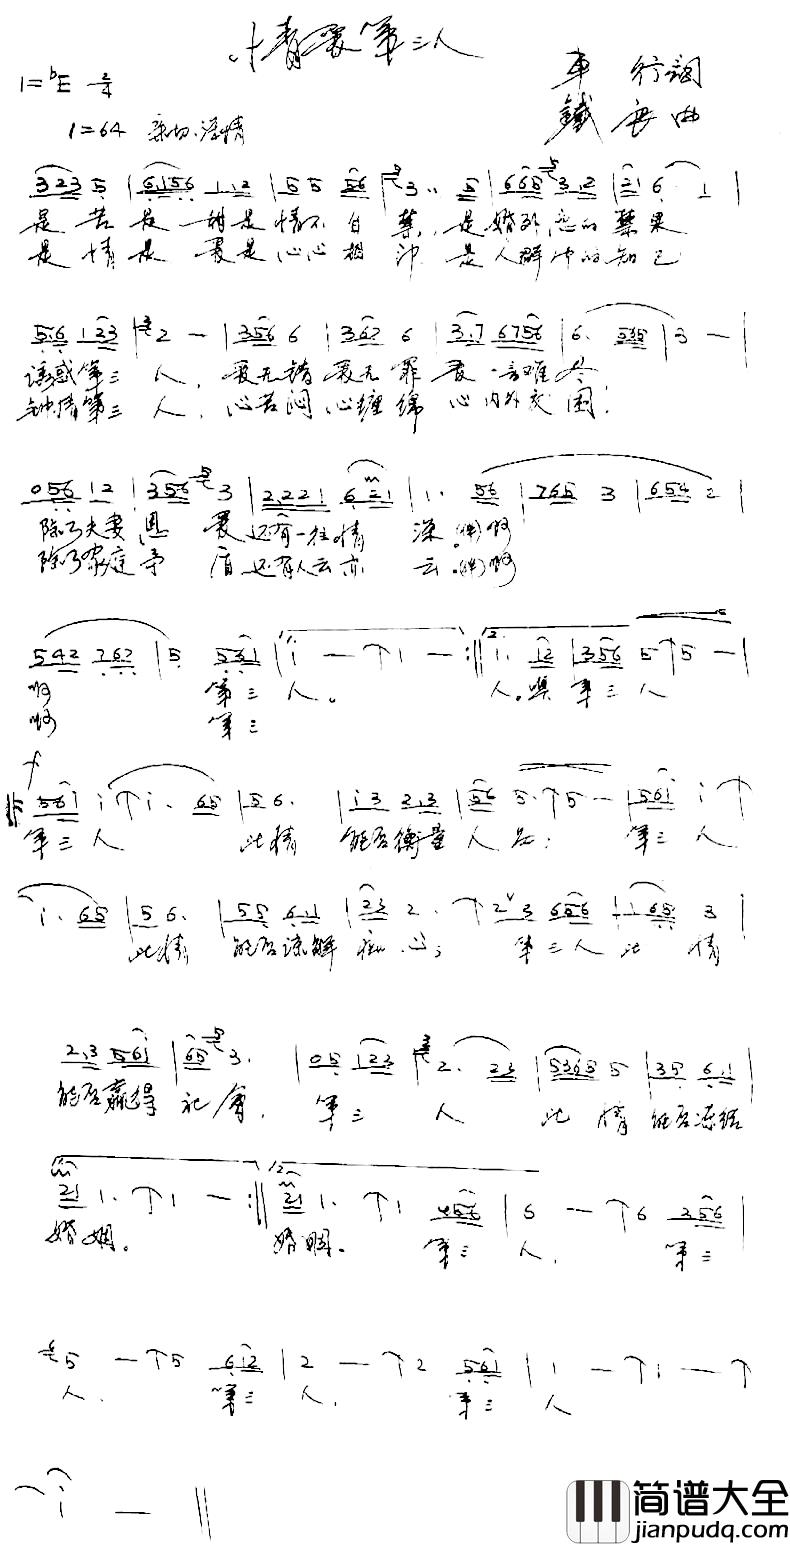 情爱第三人
1=♭E 2/4
車行詞
1=64 亲切.深情
鐵夯曲
3 2 3 5 | 6.1 5 6 1.12 | 5 5 5 6 | 3.. 5 | 6 6 5 3.12 | 2 1 6. 1 |
是苦是甜是情不自禁,是婚外恋的禁果
是情是爱是心心相冲是人群中的知己
5.6 1 2 3 | 2 — | 3 5 6 6 | 3 6 2 6 | 3.7 6 7 5 6 | 6. 5 3 5 | 3 — |
诱惑第三人,爱无错爱无罪爱一言难尽
钟情第三人,心苦闷心缠绵心内外交困;
0 5 6 1 2 | 3 5 6 3 | 2.2 2 1 6 2 1 | 1. 5 6 | 7 6 5 3 | 6 5 4 2 |
除了夫妻恩爱还有一往情深.(伴)啊
除了家庭矛盾还有人云亦云.(伴)啊
5 4 2 7 6 2 | 5 5 3 1 | i — ↑1 — :‖ 1. 1 2 | 3 5 6 5↑5 — |
啊 第三人。 人。噢第三人
啊 第三
f
5 6 i i↑i. 6 5 | 5 6. | i 3 2.3 | 5 6 5.↑5 — | 5 6 i i↑
第三人 此情能否衡量人品; 第三人
i. 6 5 | 5 6. | 5 5 6.1 | 2 3 2. ↑2 3 6 5 6 | 1 6 5 3 |
此情能否谅解痴心; 第三人此情
2.3 5 6 i | 6 5 3. | 0 5 1 2 3 | 2. 2 3 | 5 3 6 5 5 | 3 5 6.1 |
能否赢得社会, 第三人此情能否冻结
2 1 1. ↑1 — :‖ 2 1 1. ↑1 4 5 6 | 6 — ↑6 3 5 6 |
婚姻。 婚姻。 第三人, 第三
5 — ↑5 6 1 2 | 2 — ↑2 5 6 1 | 1 — ↑i — ↑
人. 第三人. 第三人
i — ‖
简谱大全
jianpudq.com